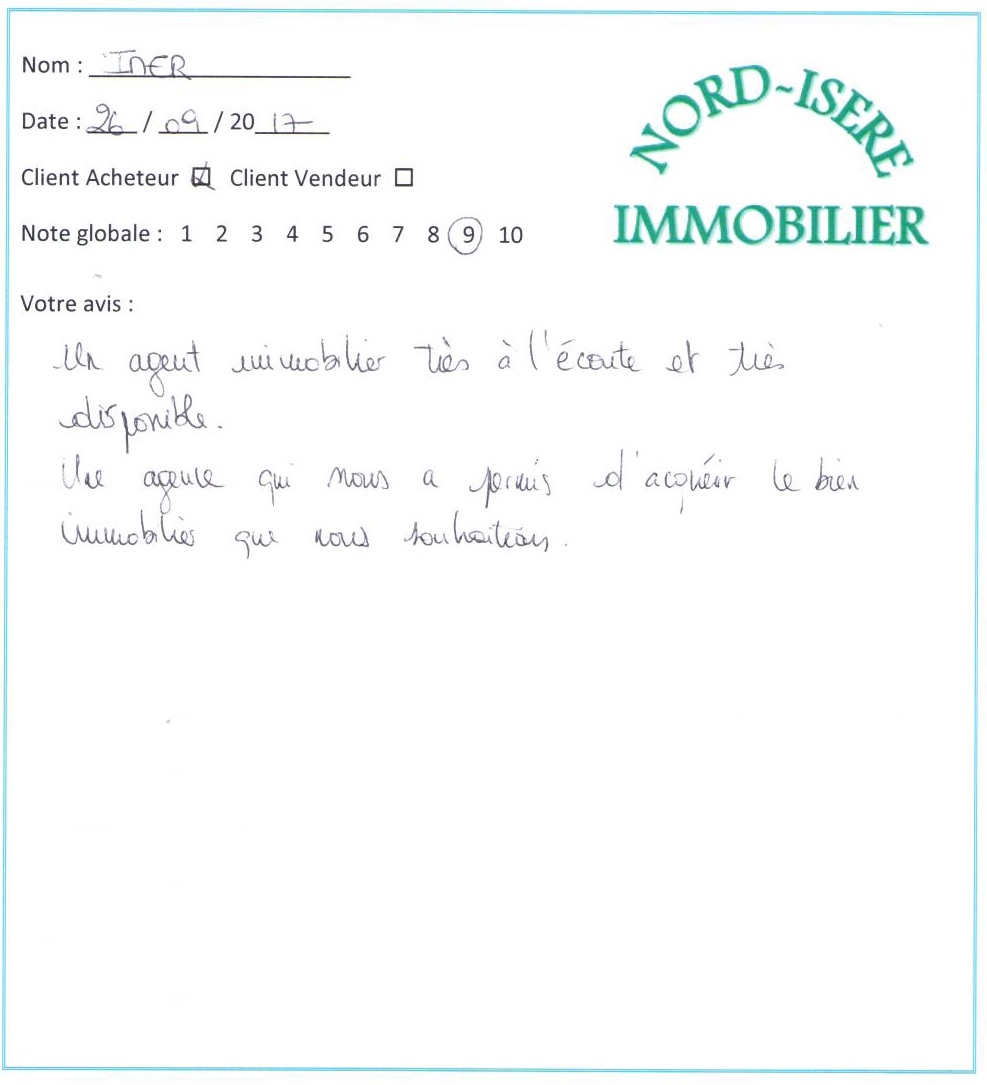 Nom : INER
NORD-ISERE
Date : 26 / 09 / 20 17
Client Acheteur ☑ Client Vendeur ☐
IMMOBILIER
Note globale : 1 2 3 4 5 6 7 8 9 10
Votre avis :
Un agent immobilier très à l'écoute et très
disponible.
Une agence qui nous a permis d'acquérir le bien
immobilier que nous souhaitions.